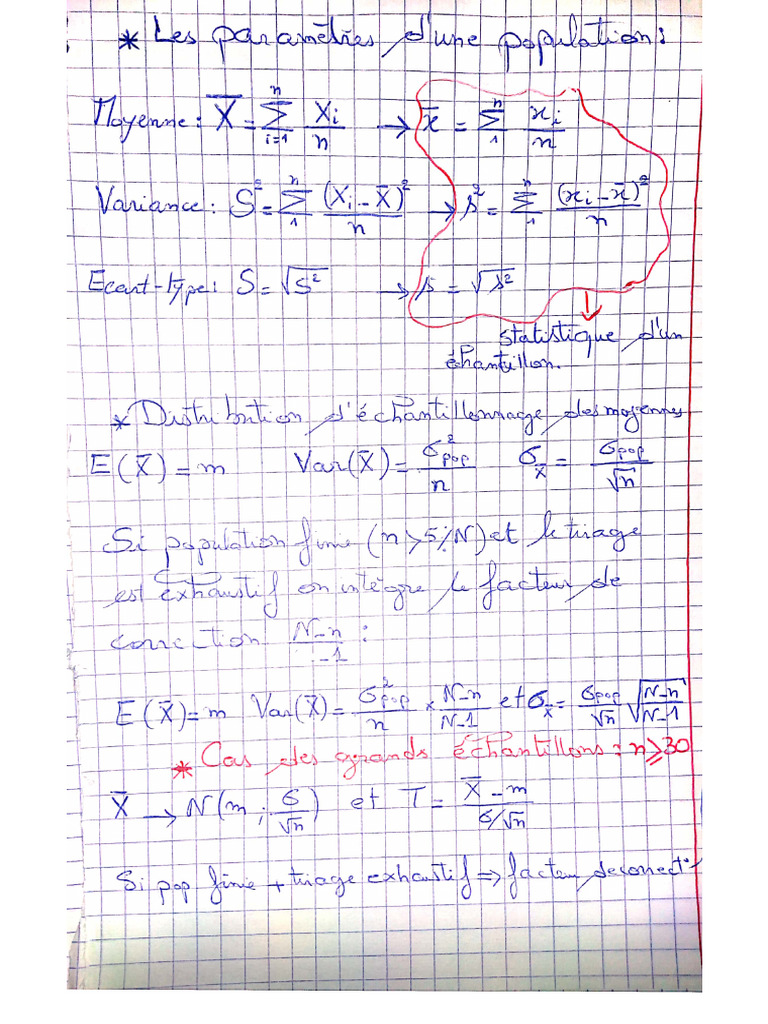 * Les paramètres d'une population :
Moyenne : X̄ = Σ_{i=1}^{n} Xi/n → x̄ = Σ_{1}^{n} xi/n
Variance : S² = Σ_{1}^{n} (Xi - X̄)²/n → s² = Σ_{1}^{n} (xi - x̄)²/n
Ecart-type : S = √S² → s = √s²
statistique d'un
échantillon.
* Distribution d'échantillonnage des moyennes
E(X̄) = m Var(X̄) = σ²pop/n σ_X̄ = σpop/√n
Si population finie (n > 5% N) et le tirage
est exhaustif on intègre le facteur de
correction N-n/-1 :
E(X̄) = m Var(X̄) = σ²pop/n × N-n/N-1 et σ_X̄ = σpop/√n √N-n/N-1
* Cas des grands échantillons : n ≥ 30
X̄ → N(m ; σ/√n) et T = X̄ - m/σ/√n
Si pop finie + tirage exhaustif ⇒ facteur de correct°